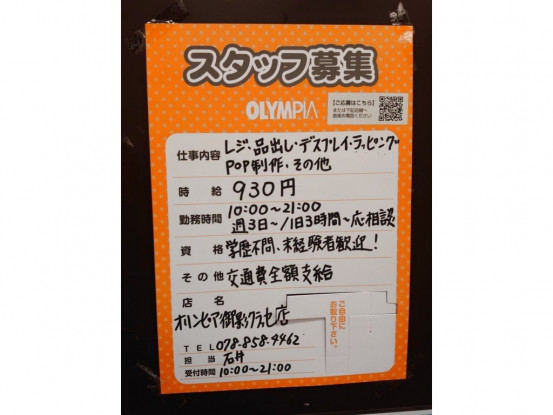 スタッフ募集
OLYMPIA
【ご応募はこちら】
または下記店舗へ
直接お電話ください
仕事内容 レジ、品出し・デスプレイ・ラッピング
POP制作、その他
時給 930円
勤務時間 10:00～21:00
週3日～/1日3時間～応相談
資格 学歴不問、未経験者歓迎!
その他 交通費全額支給
店名
オリンピア御影クラッセ店
ご自由に
お取り下さい。
TEL 078-858-4462
担当 石井
受付時間 10:00～21:00